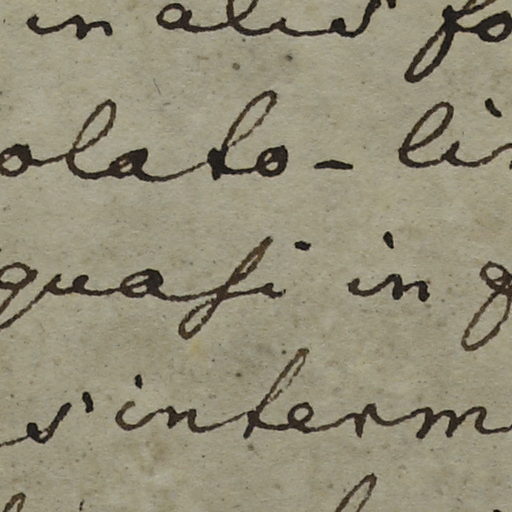 in aliis fo
olato-li
quasi in
s interm